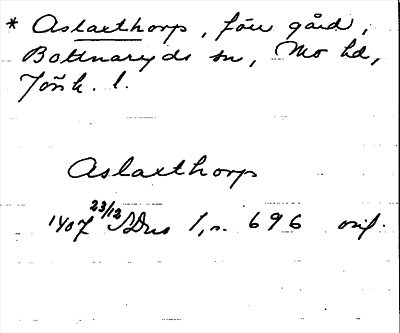 * Aslaxthorp, förr gård,
Bottnaryds sn, Mo hd,
Jönk. l.
Aslaxthorp
1407 23/12 SDns 1, n. 696 orig.